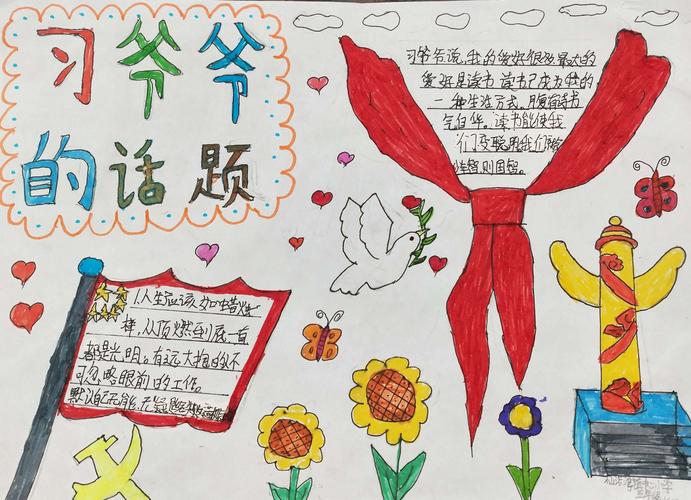 习爷爷
的话题
习爷爷说,我的爱好很多最大的
爱好是读书 读书已成为我的
一种生活方式。腹有诗书
气自华。读书能使我
们变聪
则国智。
人生应该如蜡烛一
样,从顶燃到底一直
都是光明。有远大抱的不
可忽略眼前的工作。
默认自己无能,无疑是给失败